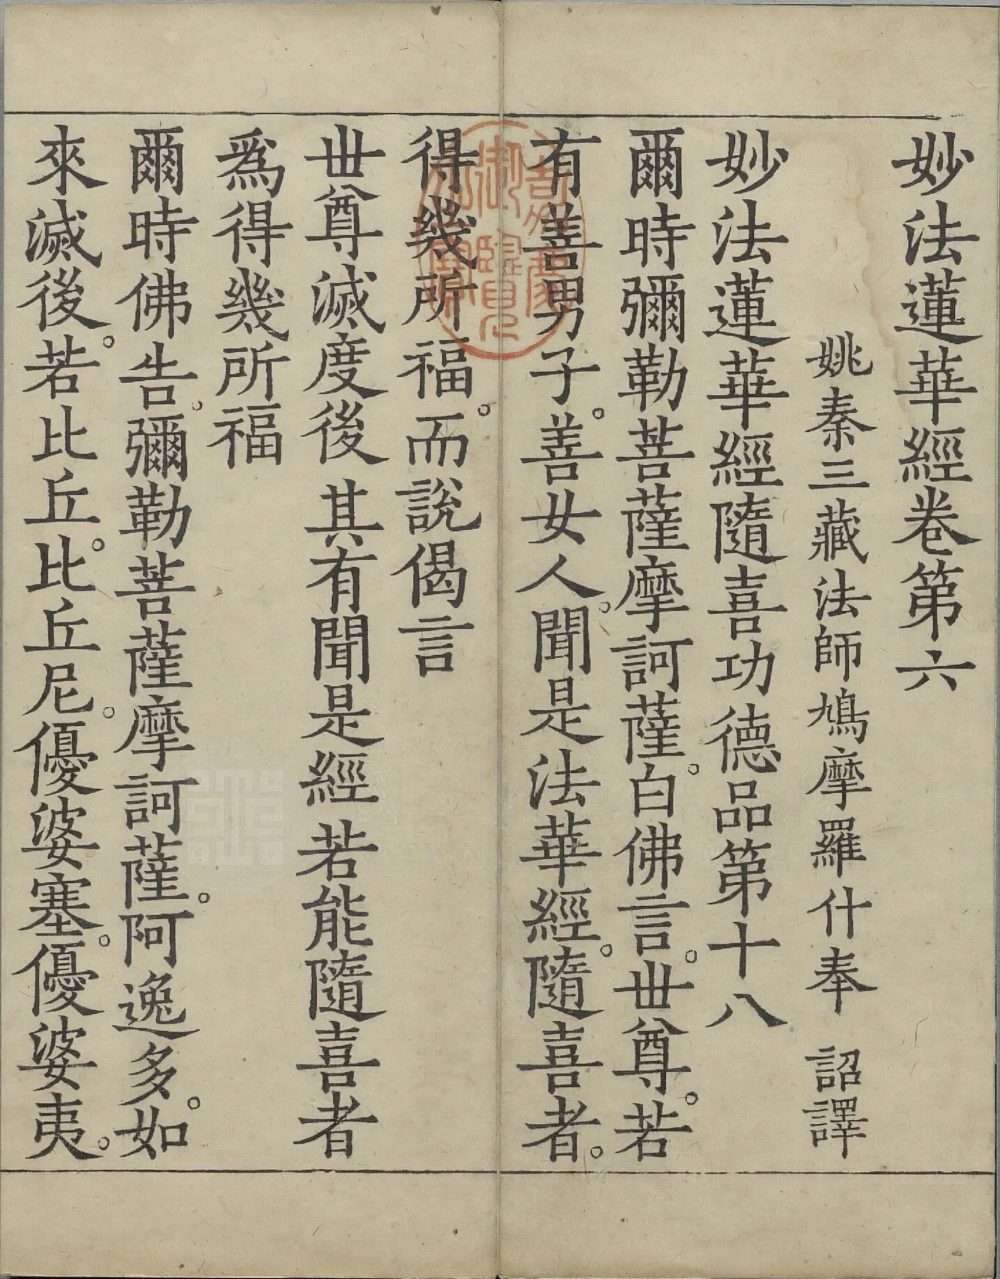 妙法蓮華經卷第六
姚秦三藏法師鳩摩羅什奉　詔譯
妙法蓮華經隨喜功德品第十八
爾時彌勒菩薩摩訶薩。白佛言。世尊。若
有善男子。善女人。聞是法華經。隨喜者。
得幾所福。而說偈言
世尊滅度後　其有聞是經　若能隨喜者
爲得幾所福
爾時佛告。彌勒菩薩摩訶薩。阿逸多。如
來滅後。若比丘。比丘尼。優婆塞。優婆夷。